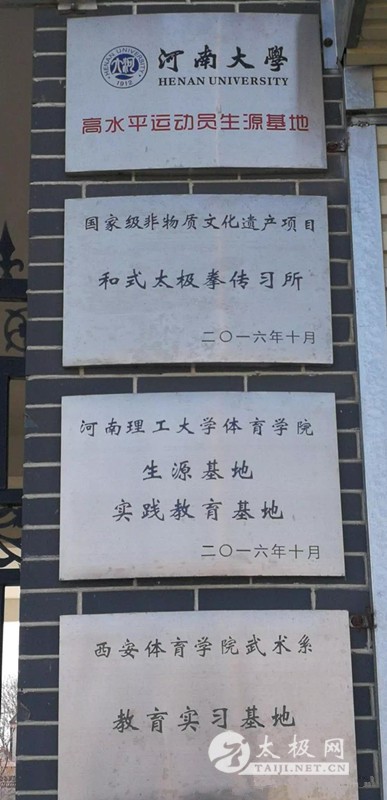 河南大學
HENAN UNIVERSITY
HENAN UNIVERSITY
1912
高水平运动员生源基地
国家级非物质文化遗产项目
和式太极拳传习所
二〇一六年十月
河南理工大学体育学院
生源基地
实践教育基地
二〇一六年十月
西安体育学院武术系
教育实习基地
太极网
TAIJI.NET.CN